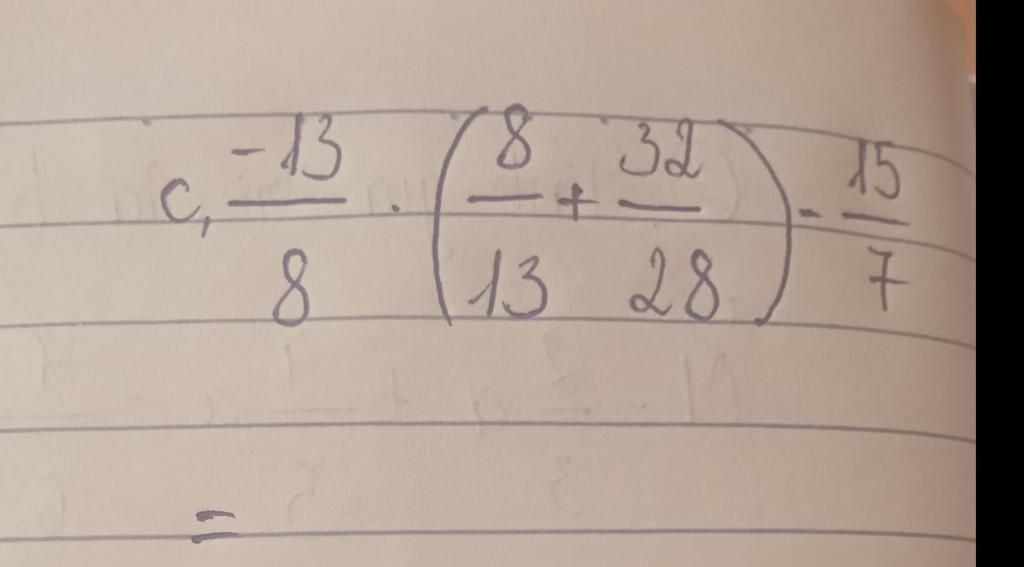 c, -13/8 . (8/13 + 32/28) - 15/7
=